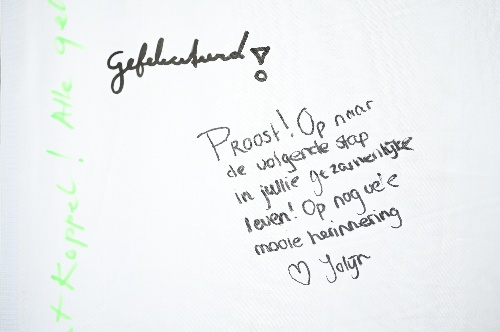 Gefeliciteerd!
Proost! Op naar
de volgende stap
in jullie gezamenlijke
leven! Op nog
mooie herinnering
♡ Jolijn
t Koppel! Alle